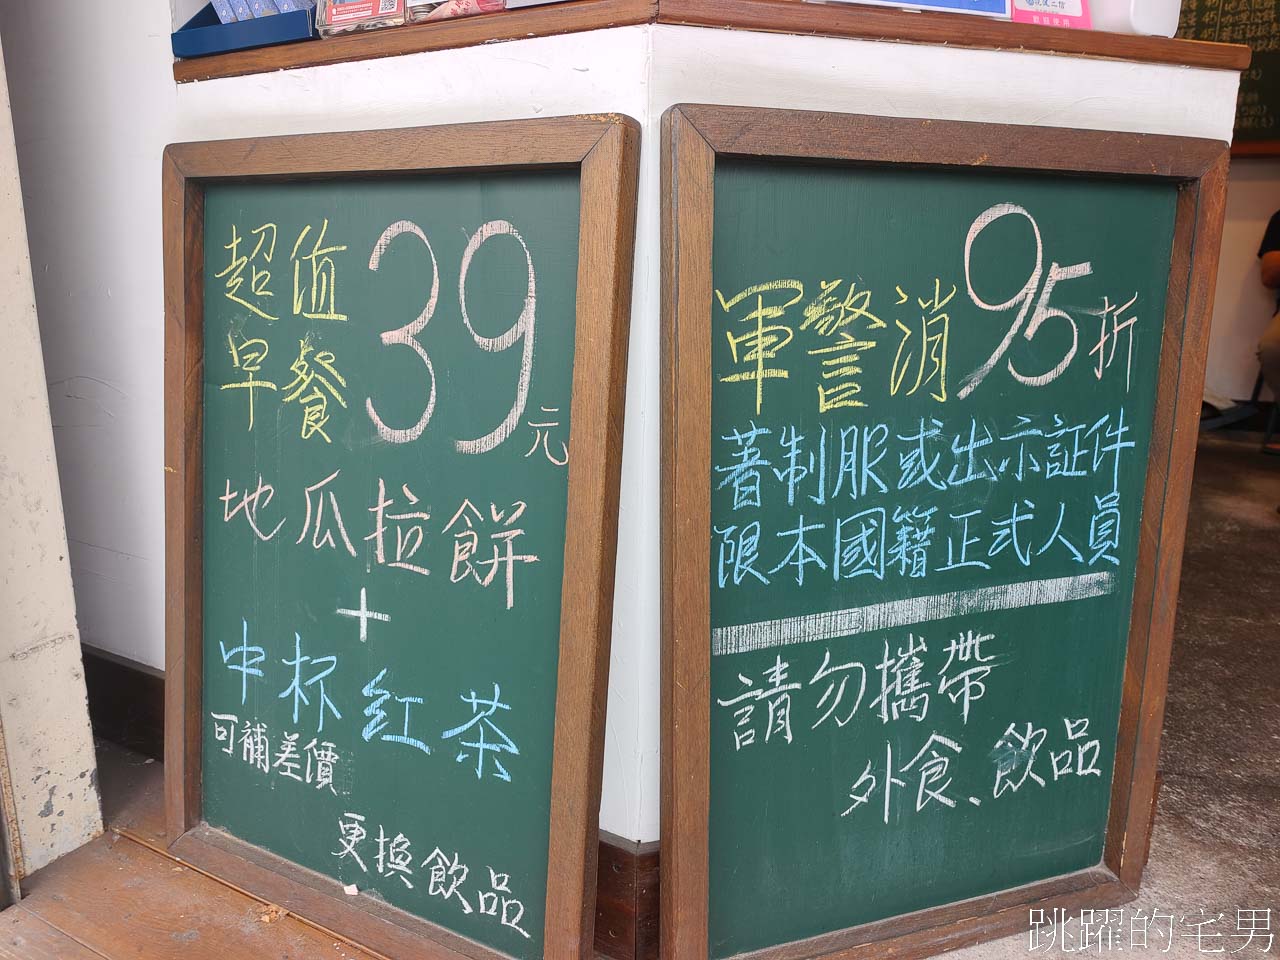 超值
早餐
39元
地瓜拉餅
+
中杯紅茶
可補差價
更換飲品
軍警消95折
著制服或出示証件
限本國籍正式人員
請勿攜帶
外食、飲品
歡迎使用
跳躍的宅男